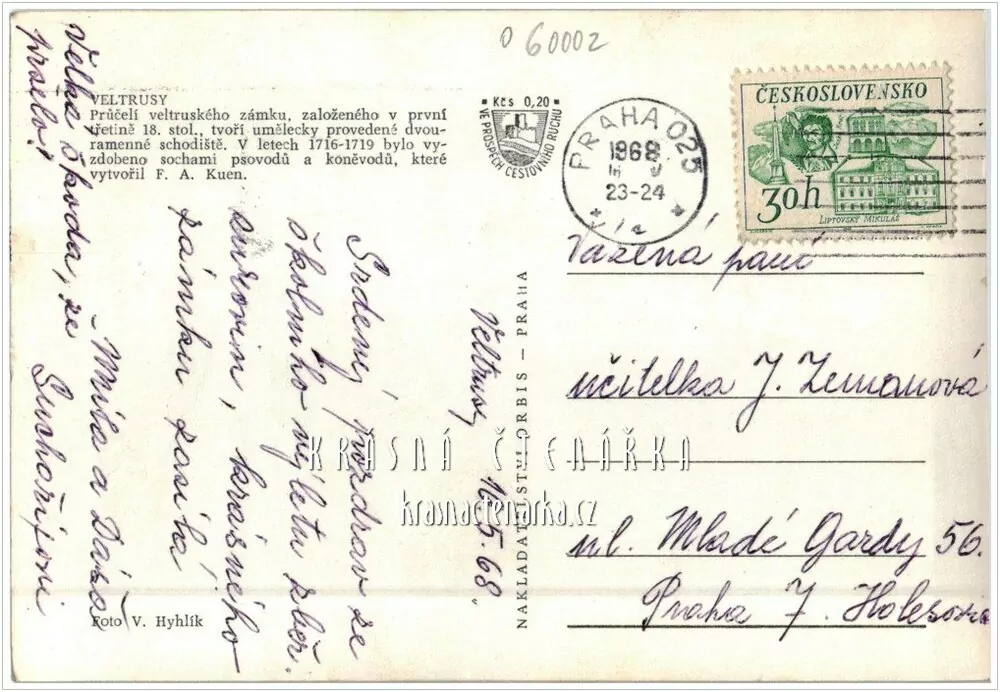 O 60002
VELTRUSY
Průčelí veltruského zámku, založeného v první
třetině 18. stol., tvoří umělecky provedené dvou-
ramenné schodiště. V letech 1716-1719 bylo vy-
zdobeno sochami psovodů a koněvodů, které
vytvořil F. A. Kuen.
Kčs 0,20
VE PROSPĚCH CESTOVNÍHO RUCHU
PRAHA 025
1968
23-24
1a
ČESKOSLOVENSKO
30h
LIPTOVSKÝ MIKULÁŠ
Veltrusy 16.5.68.
Srdečný pozdrav ze
školního výletu sběr.
surovin, krásného
zámku zasílá
Míla a
Suchořipoi
Velká škoda, že
pršelo!
NAKLADATELSTVÍ ORBIS – PRAHA
Vážená paní
učitelka J. Zemanová
ul. Mladé Gardy 56.
Praha 7. Holešovice
KRÁSNÁ ČTENÁŘKA
krasnactenarka.cz
Foto V. Hyhlík